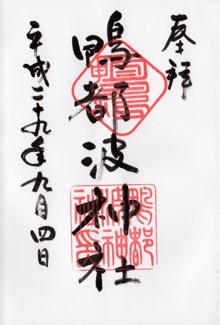 奉拝
鴨都波神社
平成二十九年九月四日
鴨都
波神
社印